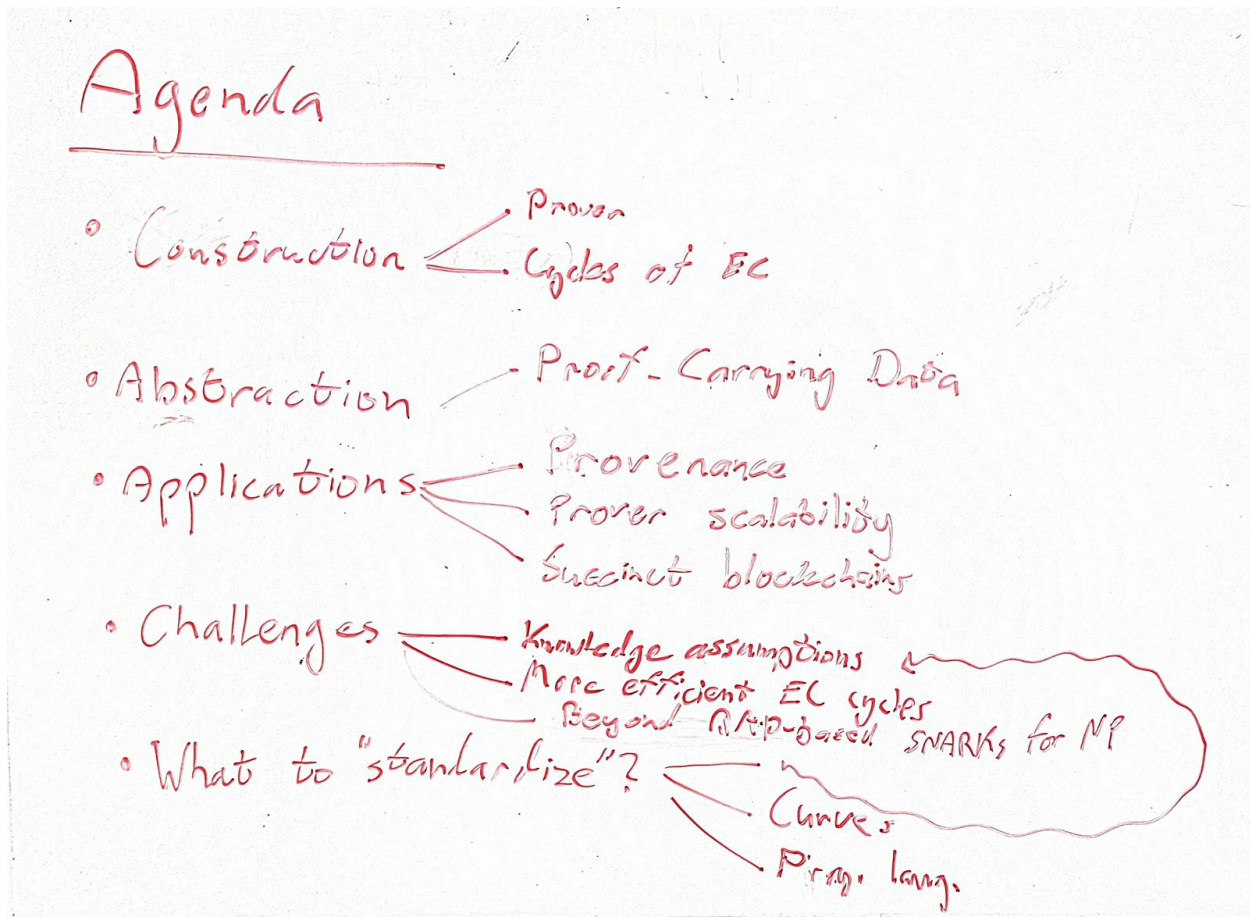 Agenda
• Construction
Prover
Cycles of EC
• Abstraction
Proof-Carrying Data
• Applications
Provenance
Prover scalability
Succinct blockchains
• Challenges
Knowledge assumptions
More efficient EC cycles
Beyond QAP-based SNARKs for NP
• What to "standardize"?
Curves
lang.